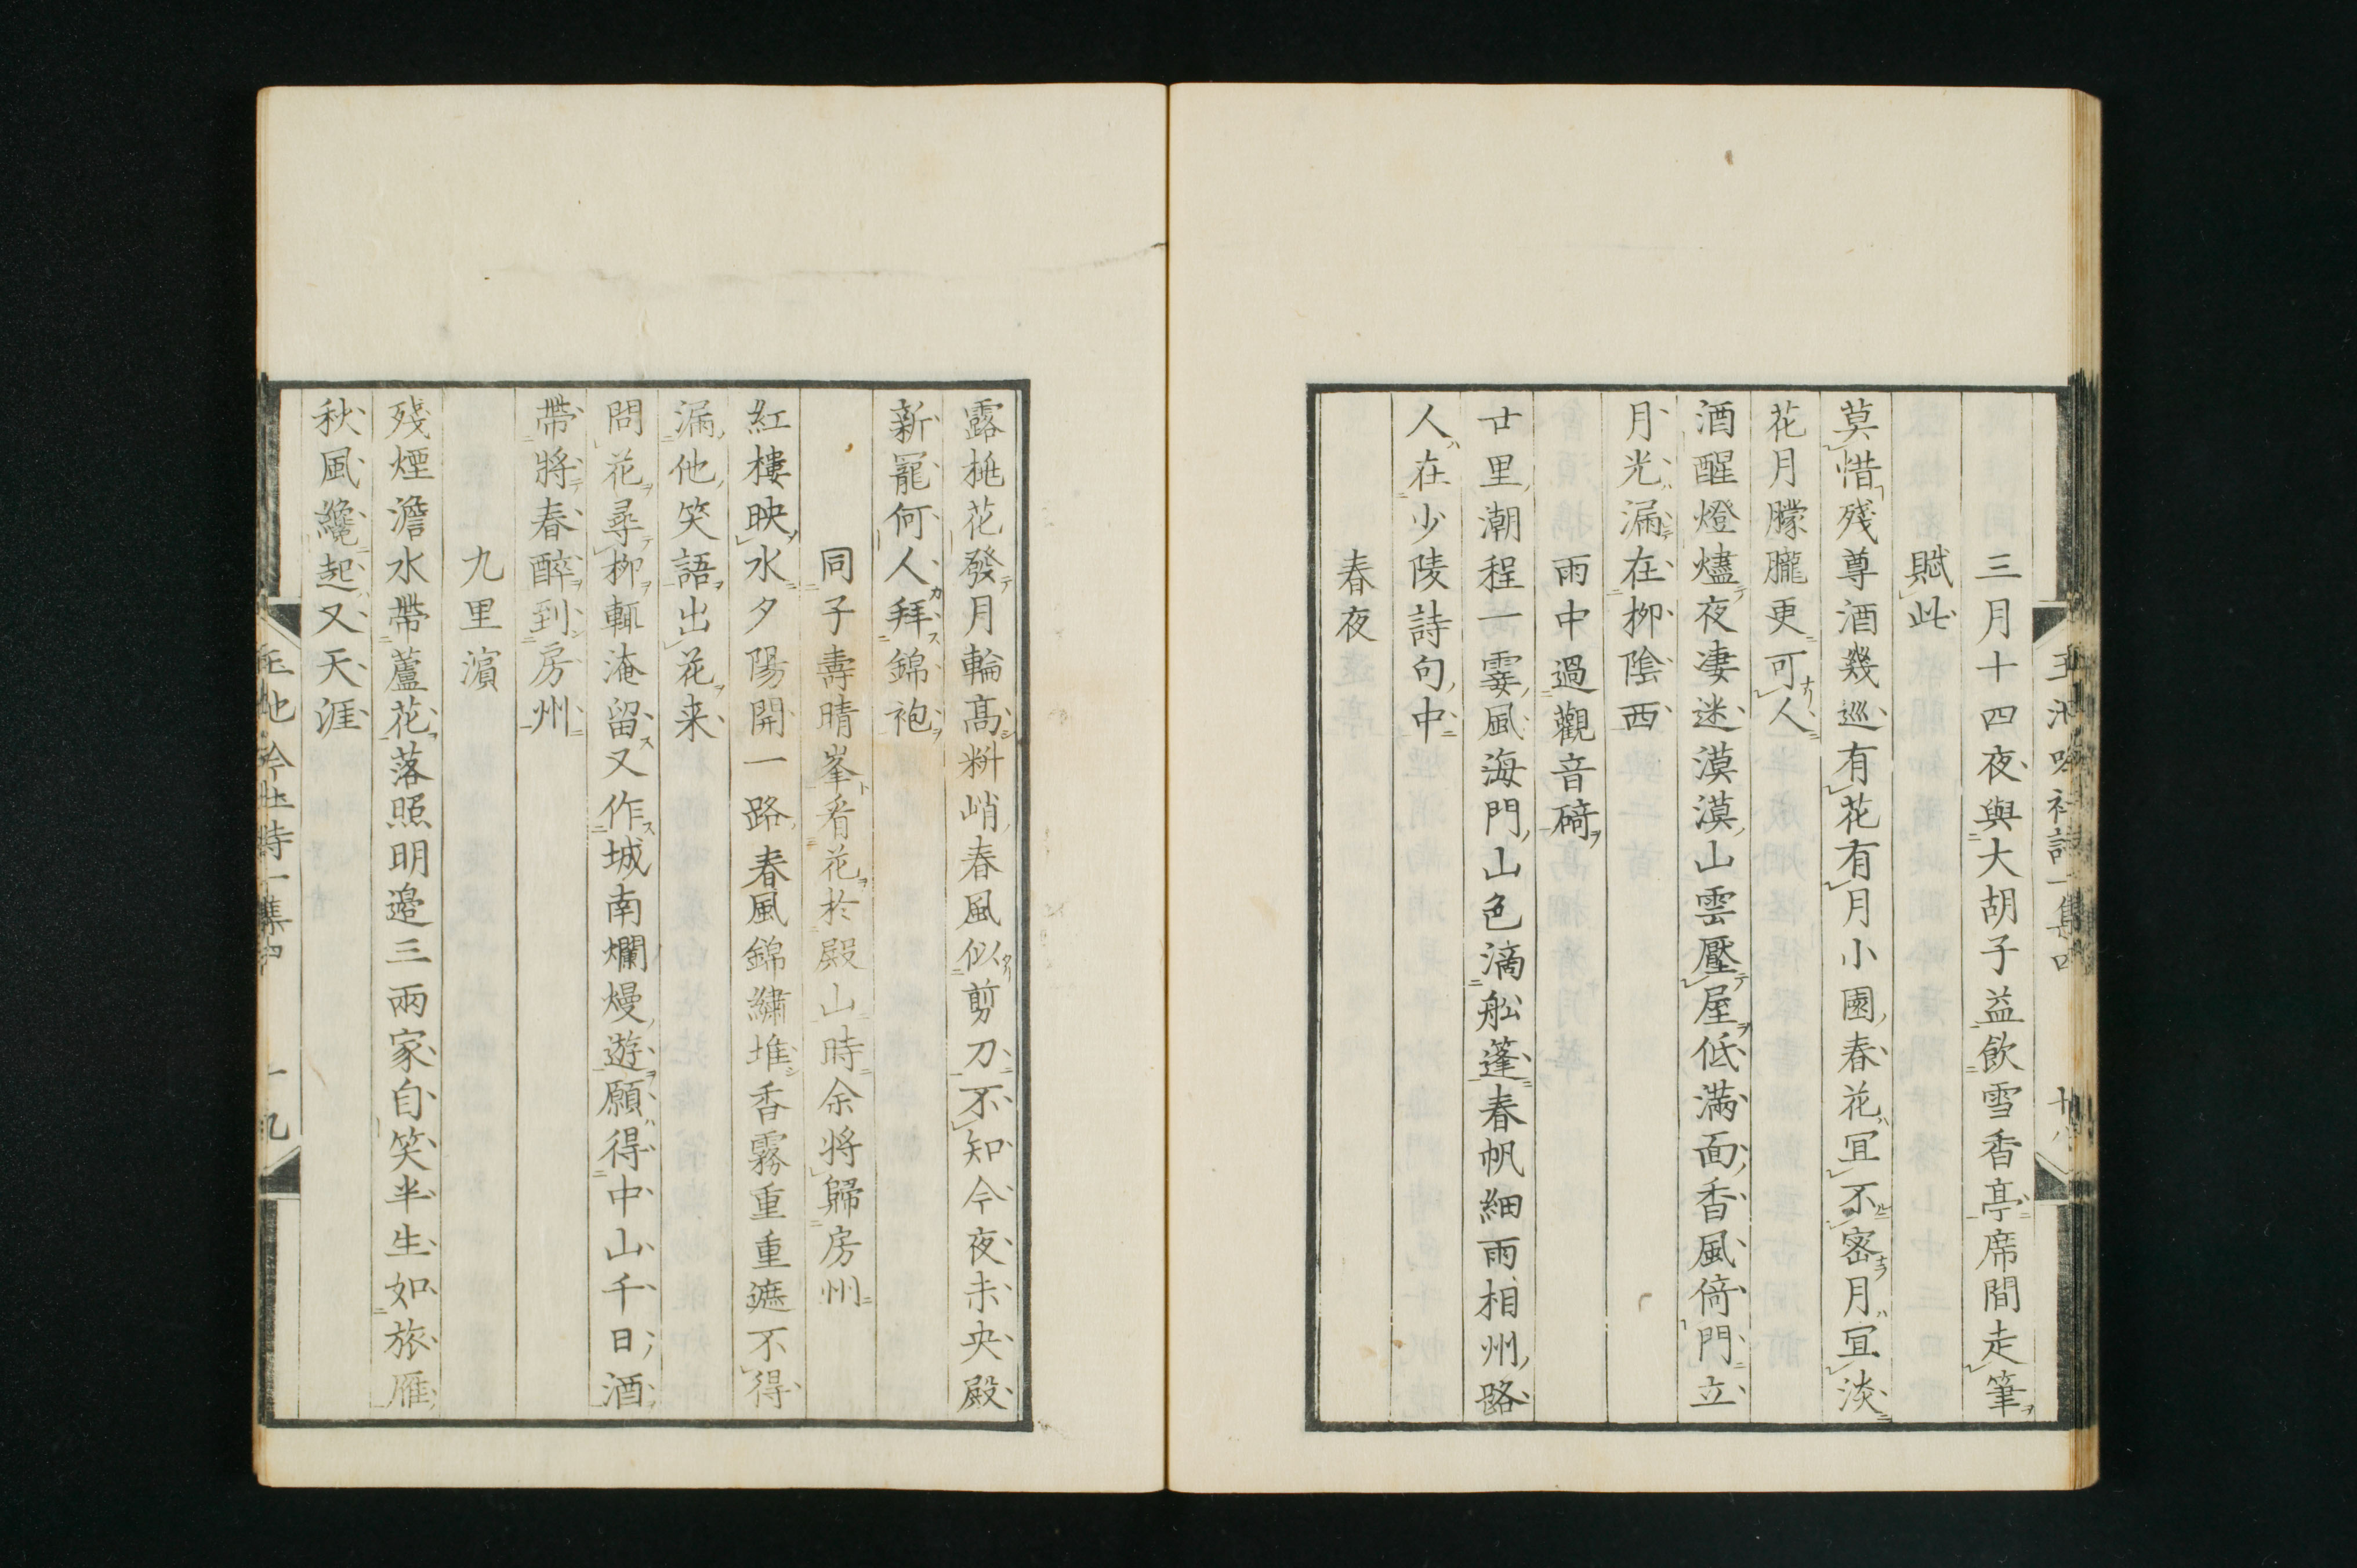 三月十四夜與大胡子益飲雪香亭席間走筆
賦此
莫惜殘尊酒幾巡有花有月小園春花宜不密月宜淡
花月朦朧更可人
酒醒燈燼夜凄迷漠漠山雲壓屋低滿面香風倚門立
月光漏在柳陰西
雨中過觀音碕
廿里潮程一霎風海門山色滴舩蓬春帆細雨相州路
人在少陵詩句中
春夜
露桃花發月輪髙料峭春風似剪刀不知今夜未央殿
新寵何人拜錦袍
同子壽晴峯看花於殿山時余将歸房州
紅樓映水夕陽開一路春風錦繡堆香霧重重遮不得
漏他笑語出花来
問花尋柳輒淹留又作城南爛熳遊願得中山千日酒
帶將春醉到房州
九里濱
殘煙澹水帶蘆花落照明邉三兩家自笑半生如旅雁
秋風纔起又天涯